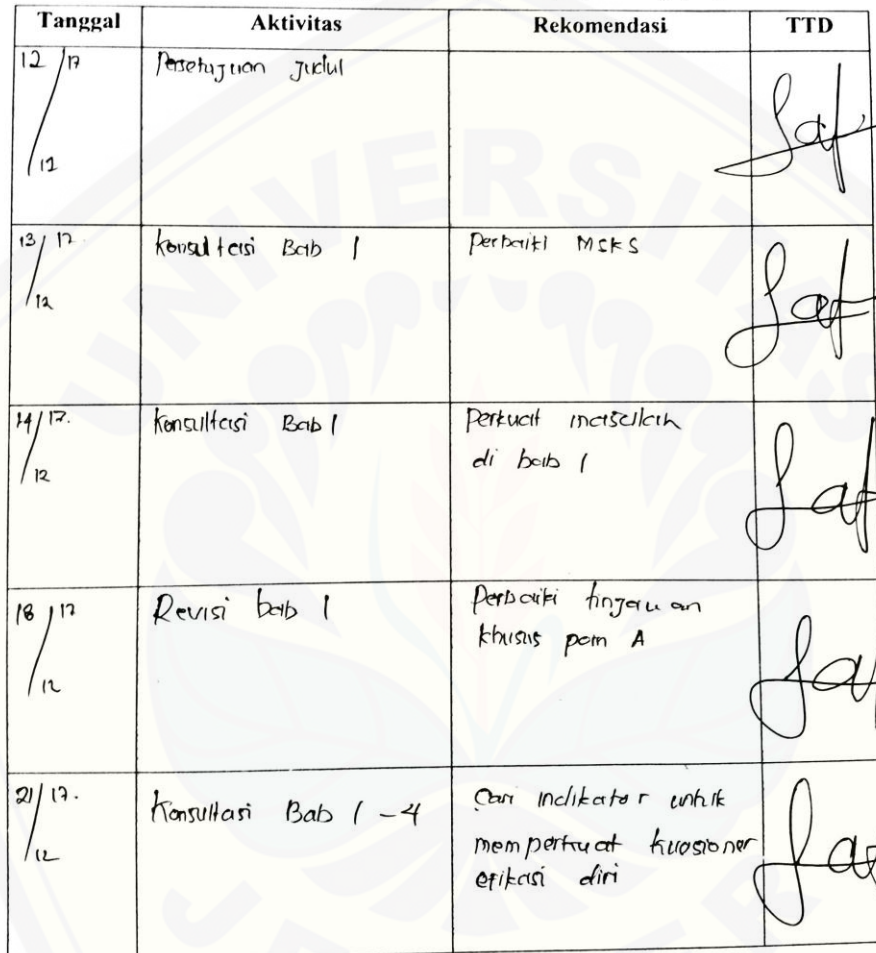 Tanggal Aktivitas Rekomendasi TTD
12/12 17 Persetujuan Judul
13/12 17. Konsultasi Bab 1 Perbaiki MSKS
14/12 17. Konsultasi Bab 1 Perkuat masalah
di bab 1
18/12 17 Revisi bab 1 Perbaiki tinjauan
khusus poin A
21/12 17. Konsultasi Bab 1 - 4 Cari indikator untuk
memperkuat kuosioner
efikasi diri
UNIVERSITAS